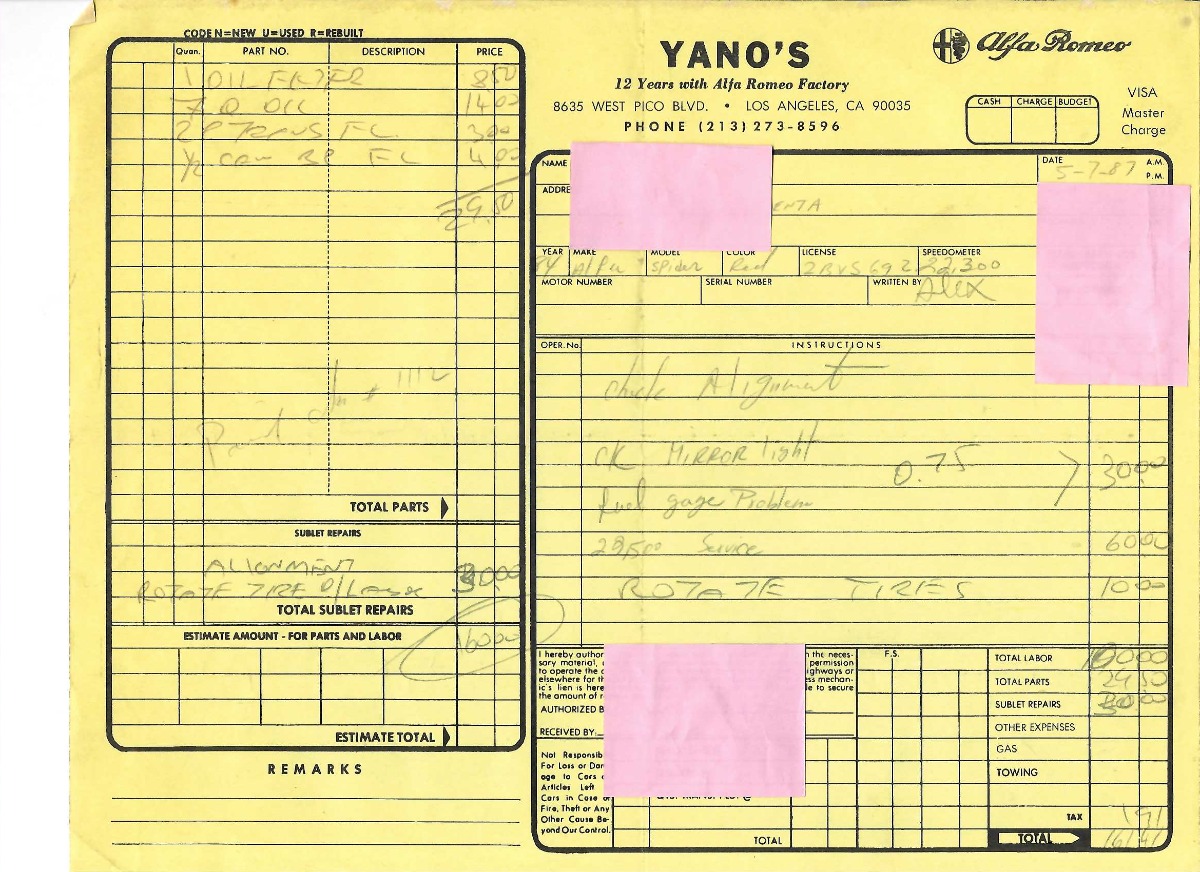 CODE N=NEW U=USED R=REBUILT
Quan. PART NO. DESCRIPTION PRICE
1 OIL FILTER 8.50
7 Q OIL 14.00
2 P TRANS FL. 3.00
1/2 Can BR FL 4.00
29.50
1112
TOTAL PARTS
SUBLET REPAIRS
ALIGNMENT 30.00
ROTATE TIRE
TOTAL SUBLET REPAIRS
ESTIMATE AMOUNT - FOR PARTS AND LABOR 160.00
ESTIMATE TOTAL
REMARKS
YANO'S
Alfa Romeo
12 Years with Alfa Romeo Factory
8635 WEST PICO BLVD. • LOS ANGELES, CA 90035
PHONE (213) 273-8596
CASH CHARGE BUDGET
VISA
Master
Charge
NAME DATE 5-7-87 A.M.
P.M.
ADDRE
ENTA
YEAR MAKE MODEL COLOR LICENSE SPEEDOMETER
84 Alfa Spider Red 2BVS692 32,300
MOTOR NUMBER SERIAL NUMBER WRITTEN BY Alex
OPER. No. INSTRUCTIONS
check Alignment
CK MIRROR light 0.75 30.00
fuel gage Problem
Service 60.00
ROTATE TIRES 10.00
I hereby author n the neces-
sary material, permission
to operate the c ighways or
elsewhere for th ss mechan-
ic's lien is here le to secure
the amount of r
AUTHORIZED B
RECEIVED BY:
Not Responsib
For Loss or Dam
age to Cars o
Articles Left
Cars in Case of
Fire, Theft or Any
Other Cause Be-
yond Our Control.
TOTAL
F.S.
TOTAL LABOR 100.00
TOTAL PARTS 29.50
SUBLET REPAIRS 30.00
OTHER EXPENSES
GAS
TOWING
TAX 1.91
TOTAL 161.41